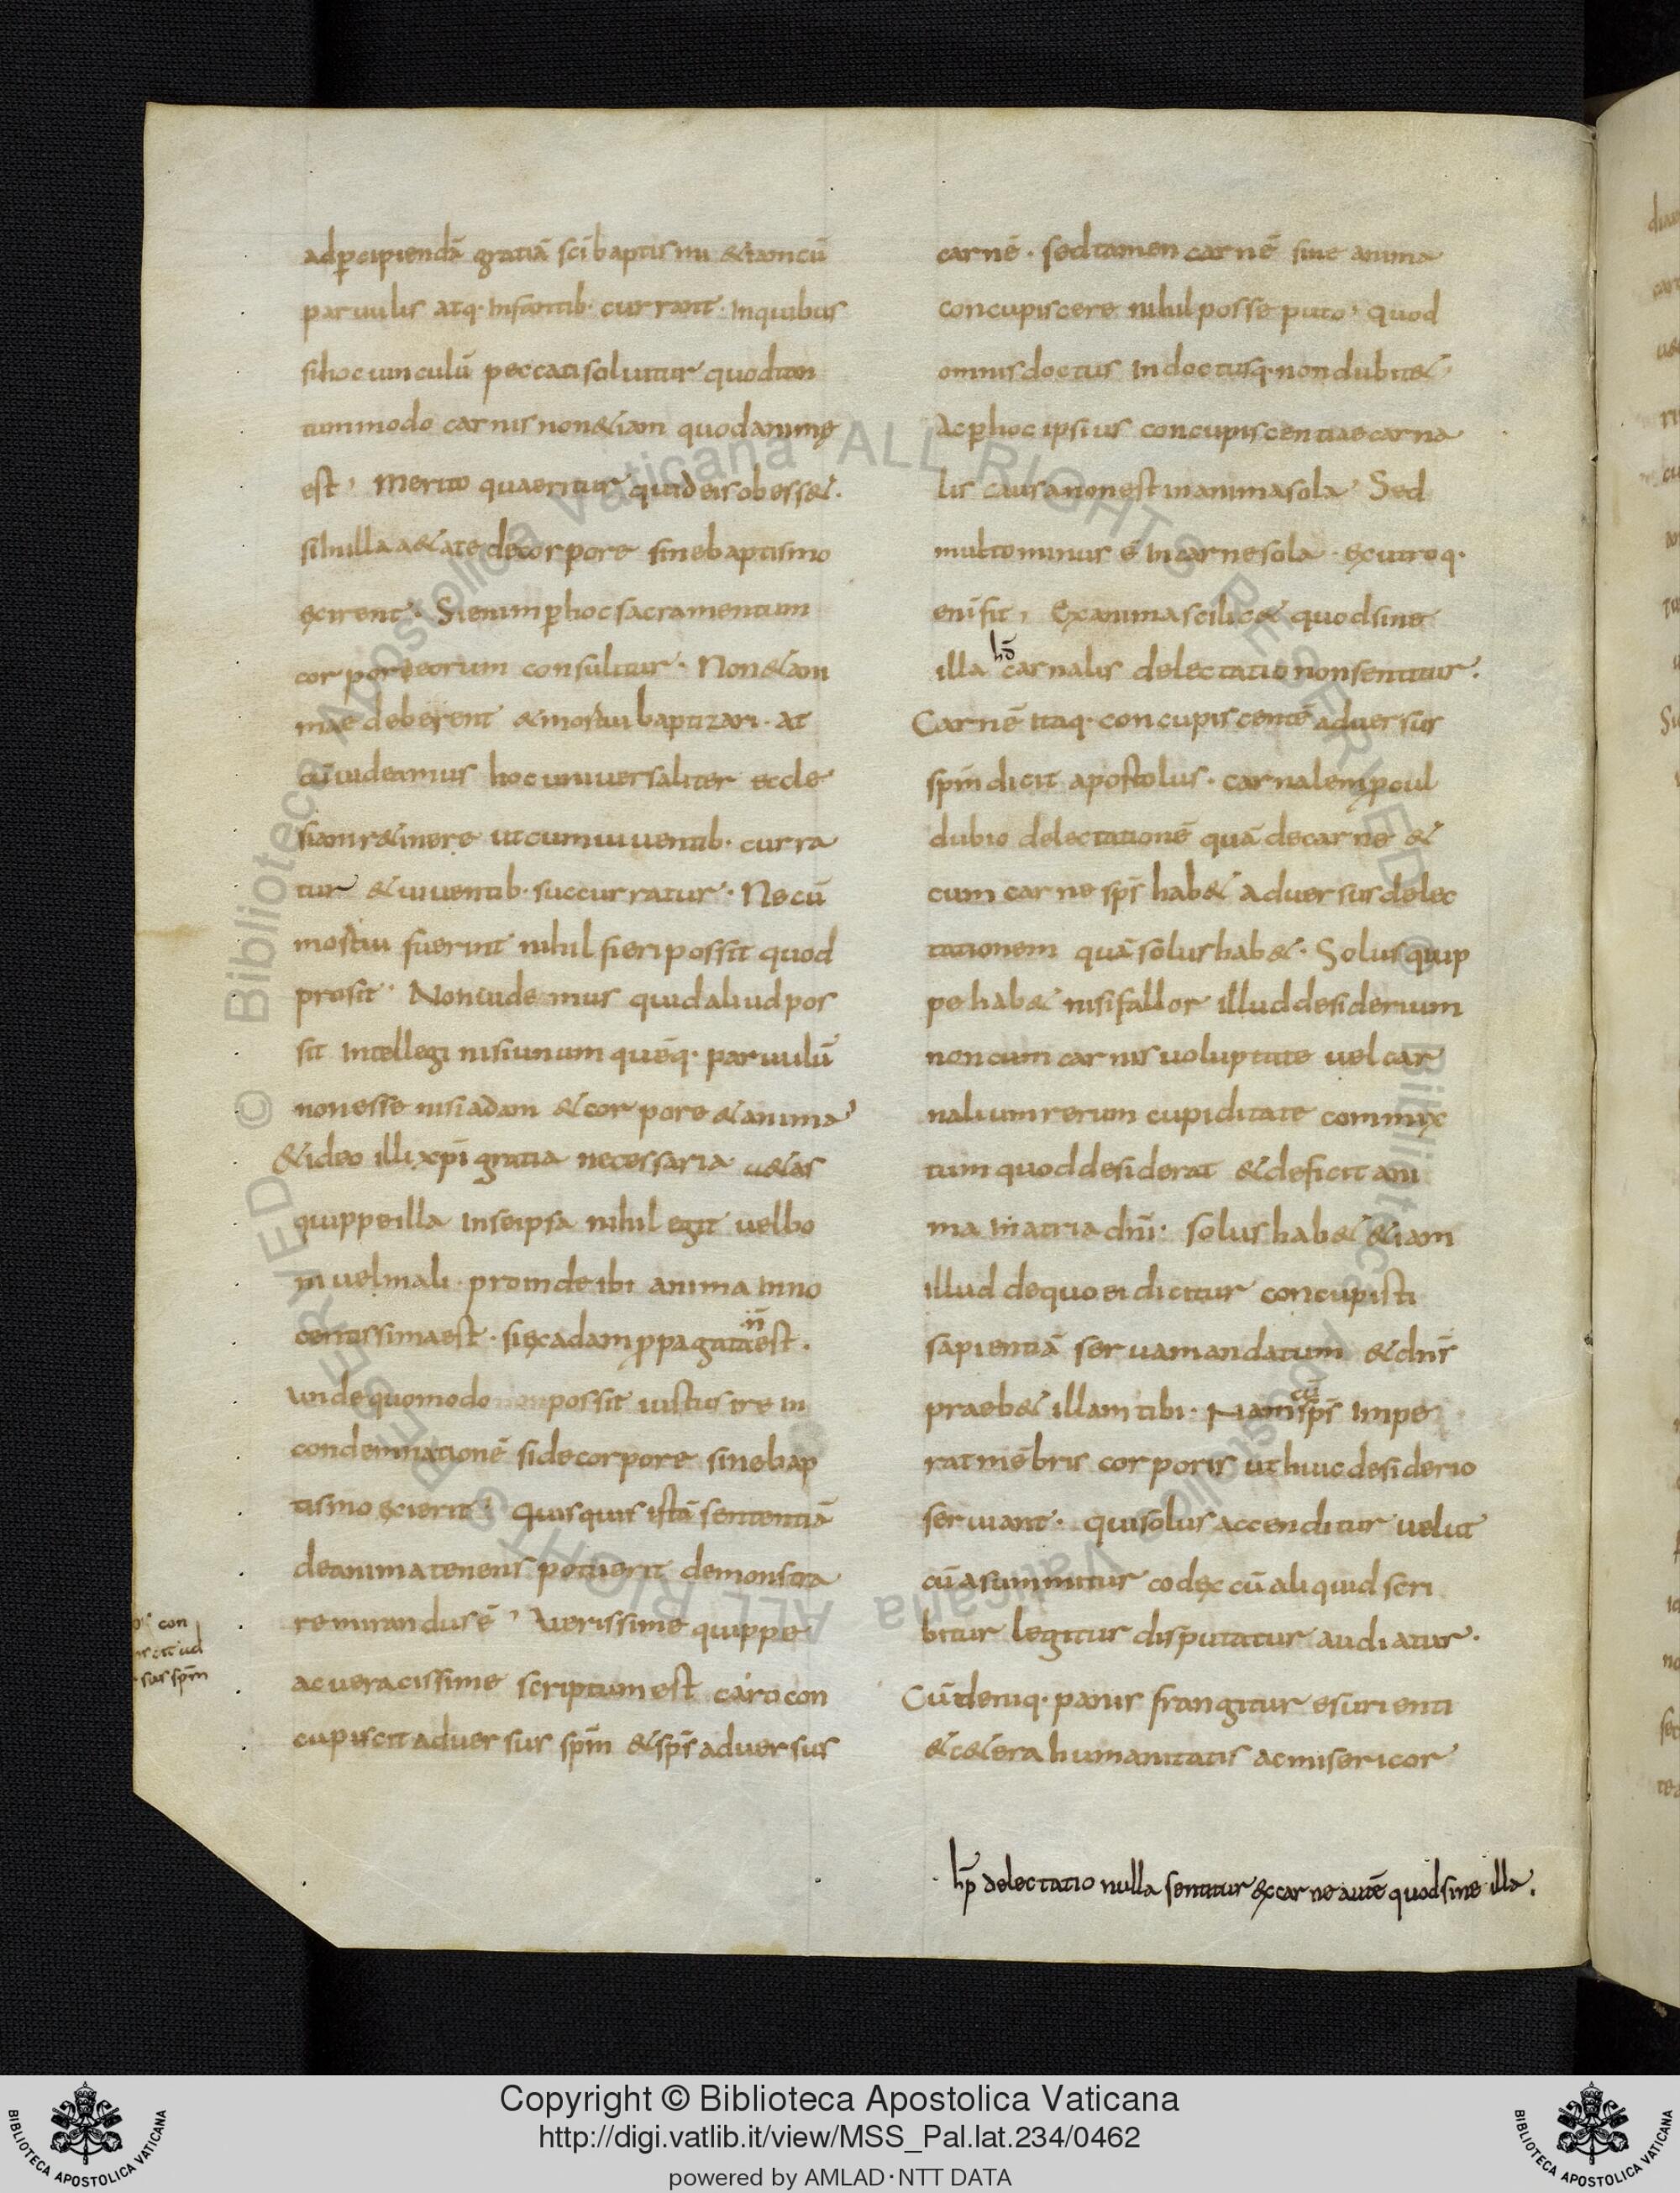 adp̄cipiendā gratiā sc̄i baptismi & iam cū
paruulis atq· Infantib· currant· Inquibus
si hoc uinculū peccati soluitur quod tan
tum modo carnis non &iam quod animę
est, merito quaeritur quid eis obess&·
si in illa a&ate de corpore sine baptismo
exirent· Si enim p̄ hoc sacramentum
corpori eorum consulitur· Non &ani
mae deberent & mortui baptizari· at
cū uideamus hoc uniuersaliter eccle
siam r&inere ut cum uiuentib· curra
tur & uiuentib· succurratur· Ne cū
mortui fuerint nihil fieri possit quod
prosit· Non uidemus quid aliud pos
sit Intellegi nisi unum quēq· paruulū
non esse nisi adam & corpore & anima
& ideo illi xp̄i gratia necessaria a&as
quippe illa Inse ipsa nihil egit uel bo
ni uel mali· proinde ibi anima Inno
centissima est· si ex adam p̄pagata n̄ est·
unde quomodo non possit iustus ire in
condemnationē si de corpore sine bap
tismo exierit· quisquis istā sententiā
de anima tenens potuerit demonstra
re mirandus ē, Uerissime quippe
ac ueracissime scriptum est caro con
cupiscit aduersus sp̄m & sp̄s aduersus
con
ad
sus sp̄m
carnē· sed tamen carnē sine anima
concupiscere nihil posse puto· quod
omnis doctus Indoctusq· non dubit&
Ac p̄ hoc ipsius concupiscentiae carna
lis causa non est in anima sola· Sed
multo minus ē In carne sola· ex utroq·
enī fit, Ex anima scilic& quod sine
illa hō carnalis delectatio non sentitur·
Carnē itaq· concupiscentē aduersus
sp̄m dicit apostolus· carnalem p̄cul
dubio delectationē quā de carne &
cum carne sp̄s hab& aduersus delec
tationem quā solus hab&· Solus quip
pe hab& nisi fallor illud desiderium
non cum carnis uoluptate uel car
nalium rerum cupiditate commix
tum quod desiderat & deficit ani
ma In atria dn̄i· solus hab& &iam
illud de quo ei dicitur concupisti
sapientiā serua mandatum & dn̄s
praeb& illam tibi· Nam cū sp̄s Impe
rat mēbris corporis ut huic desiderio
seruiant· qui solus accenditur uelut
cū asummitur codex cū aliquid scri
bitur legitur disputatur audiatur·
Cū deniq· panis frangitur esurienti
& c&era humanitatis ac misericor
hp̄ delectatio nulla sentitur ex carne autē quod sine illa.
Copyright © Biblioteca Apostolica Vaticana
http://digi.vatlib.it/view/MSS_Pal.lat.234/0462
powered by AMLAD·NTT DATA
BIBLIOTECA APOSTOLICA VATICANA
BIBLIOTECA APOSTOLICA VATICANA
© Biblioteca Apostolica Vaticana ALL RIGHTS RESERVED
© Biblioteca Apostolica Vaticana ALL RIGHTS RESERVED